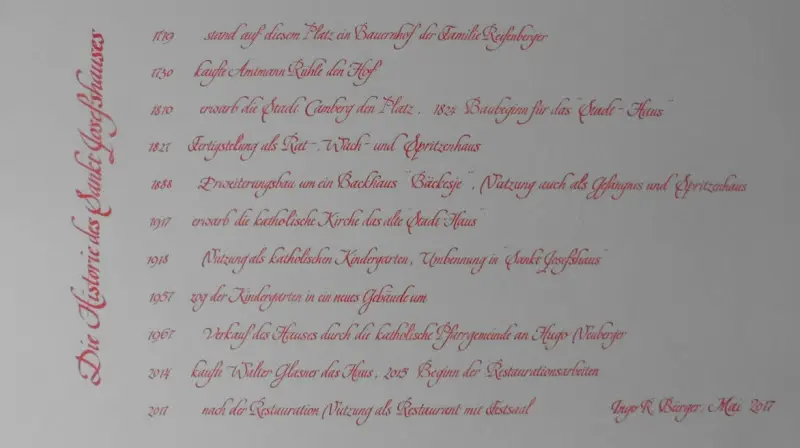 Die Historie des Sankt Josefshauses
1719 stand auf diesem Platz ein Bauernhof der Familie Reifenberger
1730 kaufte Amtmann Rühle den Hof
1810 erwarb die Stadt Camberg den Platz, 1824 Baubeginn für das "Stadt-Haus"
1827 Fertigstellung als Rat-, Wach- und Spritzenhaus
1888 Erweiterungsbau um ein Backhaus "Bäckesje", Nutzung auch als Gefängnis und Spritzenhaus
1917 erwarb die katholische Kirche das alte "Stadt-Haus"
1918 Nutzung als katholischen Kindergarten, Umbennung in "Sankt Josefshaus"
1957 zog der Kindergarten in ein neues Gebäude um
1967 Verkauf des Hauses durch die katholische Pfarrgemeinde an Hugo Neuberger
2014 kaufte Walter Glasner das Haus, 2015 Beginn der Restaurationsarbeiten
2017 nach der Restauration Nutzung als Restaurant mit Festsaal
Ingo R. Bürger, Mai 2017